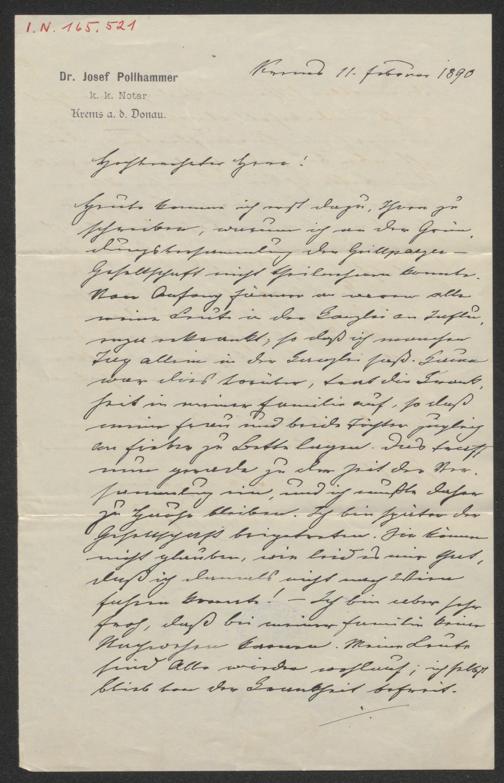 I.N. 165.521
Dr. Josef Pollhammer
k. k. Notar
Krems a. d. Donau.
Krems 11. Februar 1890
Hochverehrter Herr!
Heute komme ich erst dazu, Ihnen zu
schreiben, warum ich an der Grün-
dungsversammlung der Grillparzer-
Gesellschaft nicht theilnehmen konnte.
Von Anfang Jänner an waren alle
meine Leute in der Kanzlei an Influ-
enza erkrankt, so daß ich manchen
Tag allein in der Kanzlei saß. Kaum
war dies vorüber, trat die Krank-
heit in meiner Familie auf, so daß
meine Frau und beide Töchter zugleich
am Fieber zu Bette lagen. Dies traf
nun gerade zu der Zeit der Ver-
sammlung ein, und ich mußte daher
zu Hause bleiben. Ich bin später der
Gesellschaft beigetreten. Sie können
nicht glauben, wie leid es mir thut,
daß ich damals nicht nach Wien
fahren konnte! – Ich bin aber sehr
froh, daß bei meiner Familie keine
Nachwehen kamen. Meine Leute
sind Alle wieder wohlauf; ich selbst
blieb von der Krankheit befreit.